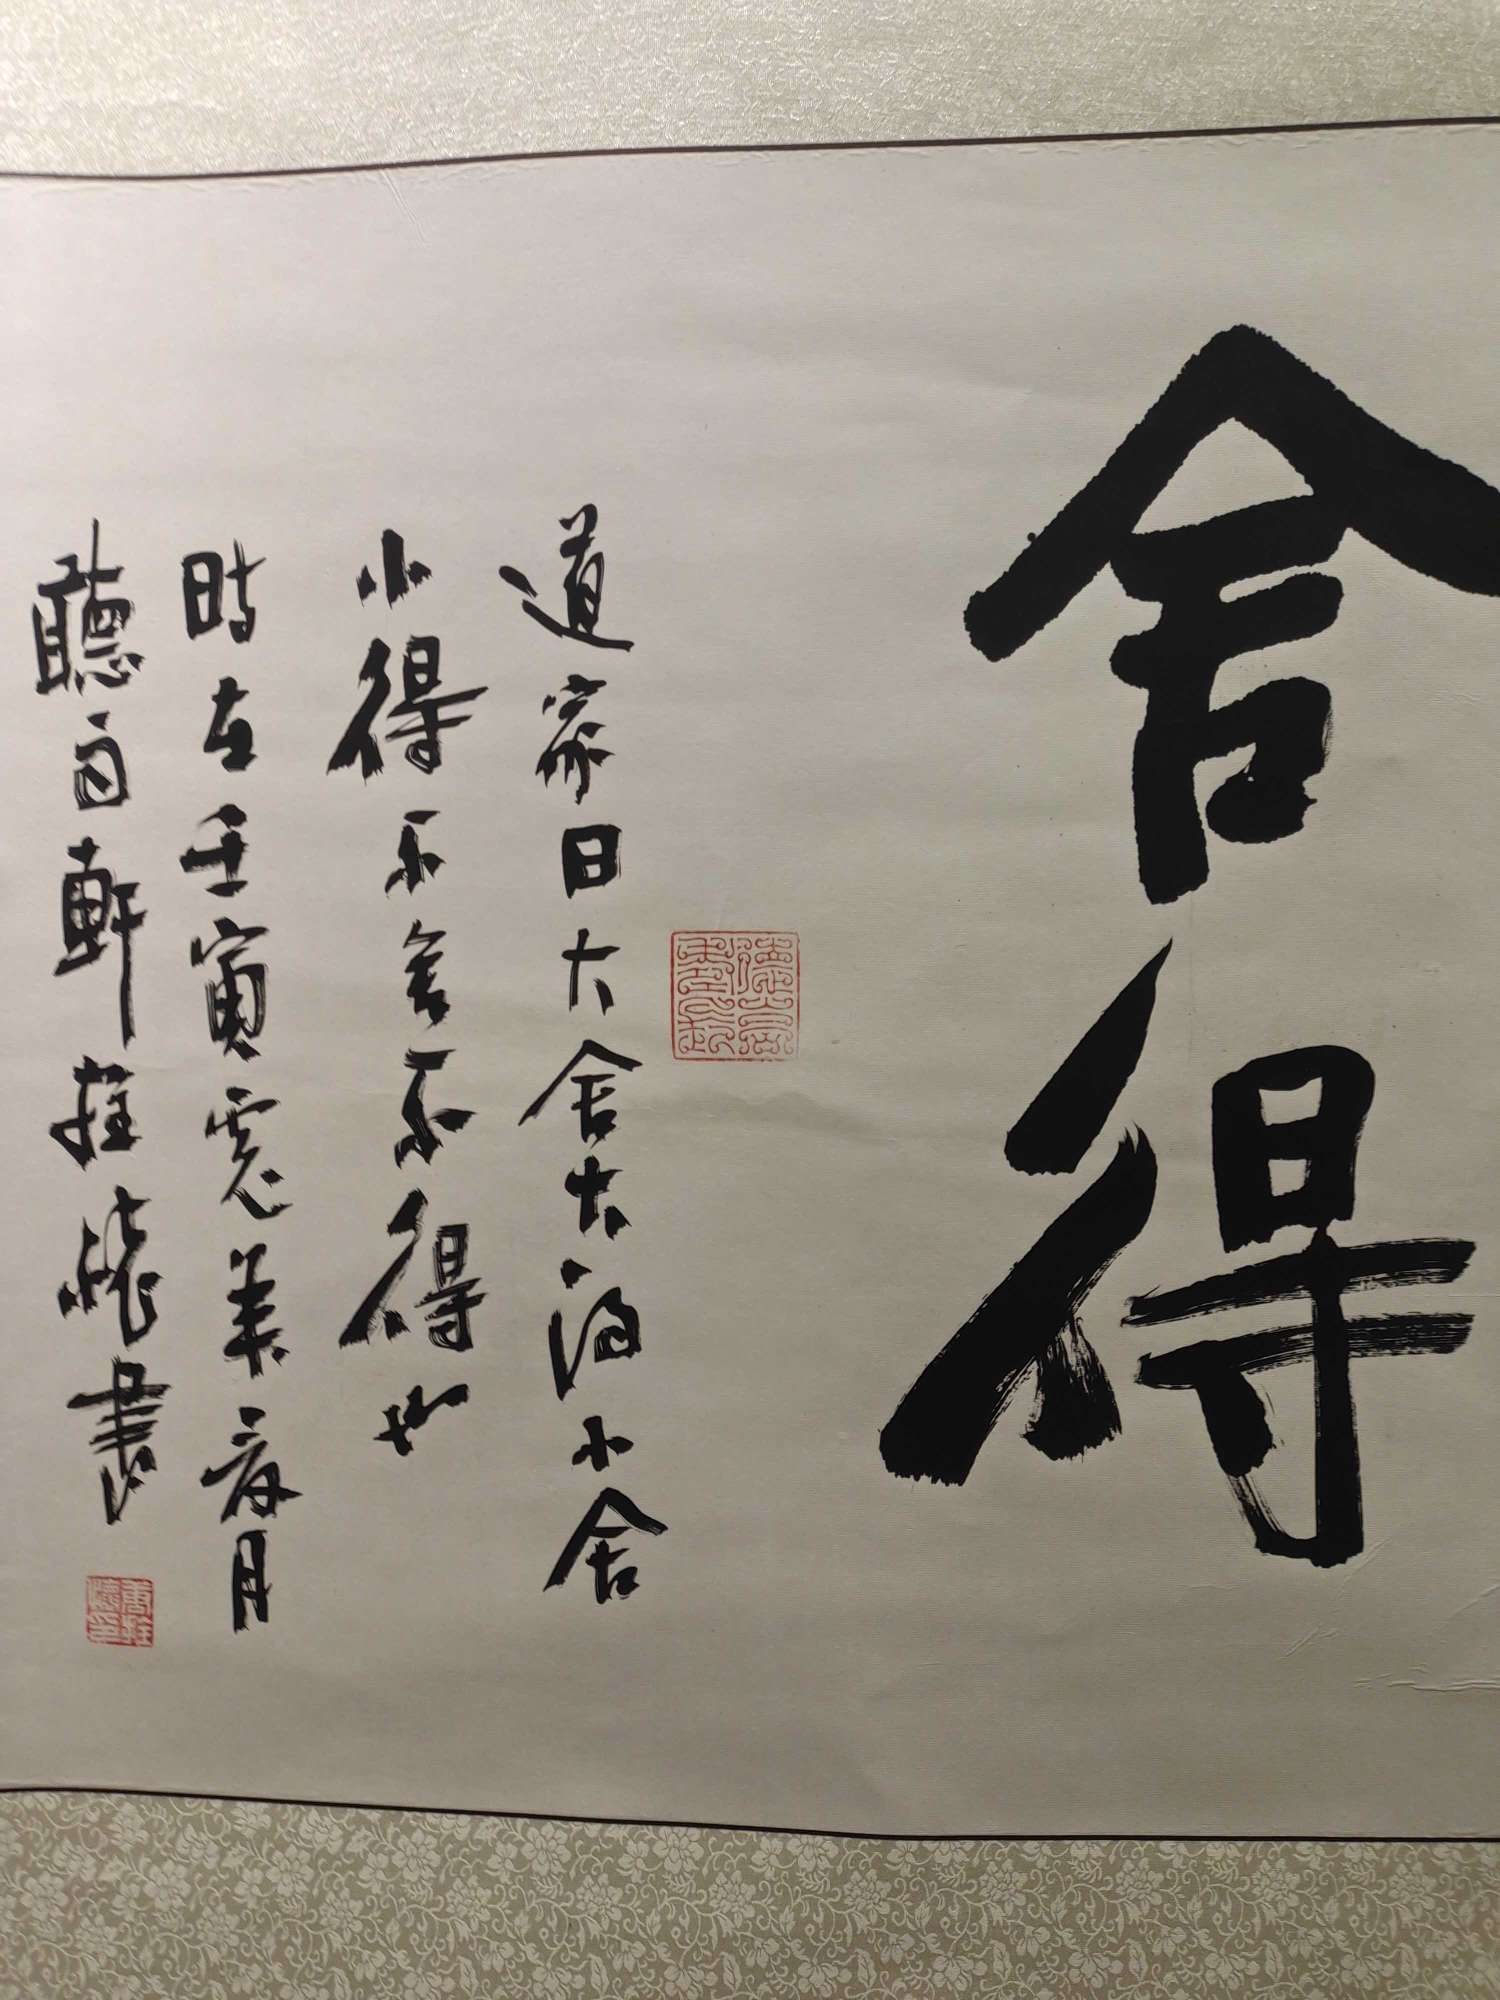 舍得
道家曰大舍大得小舍
小得不舍不得也
時在壬寅虎年夏月
聽雨軒 書